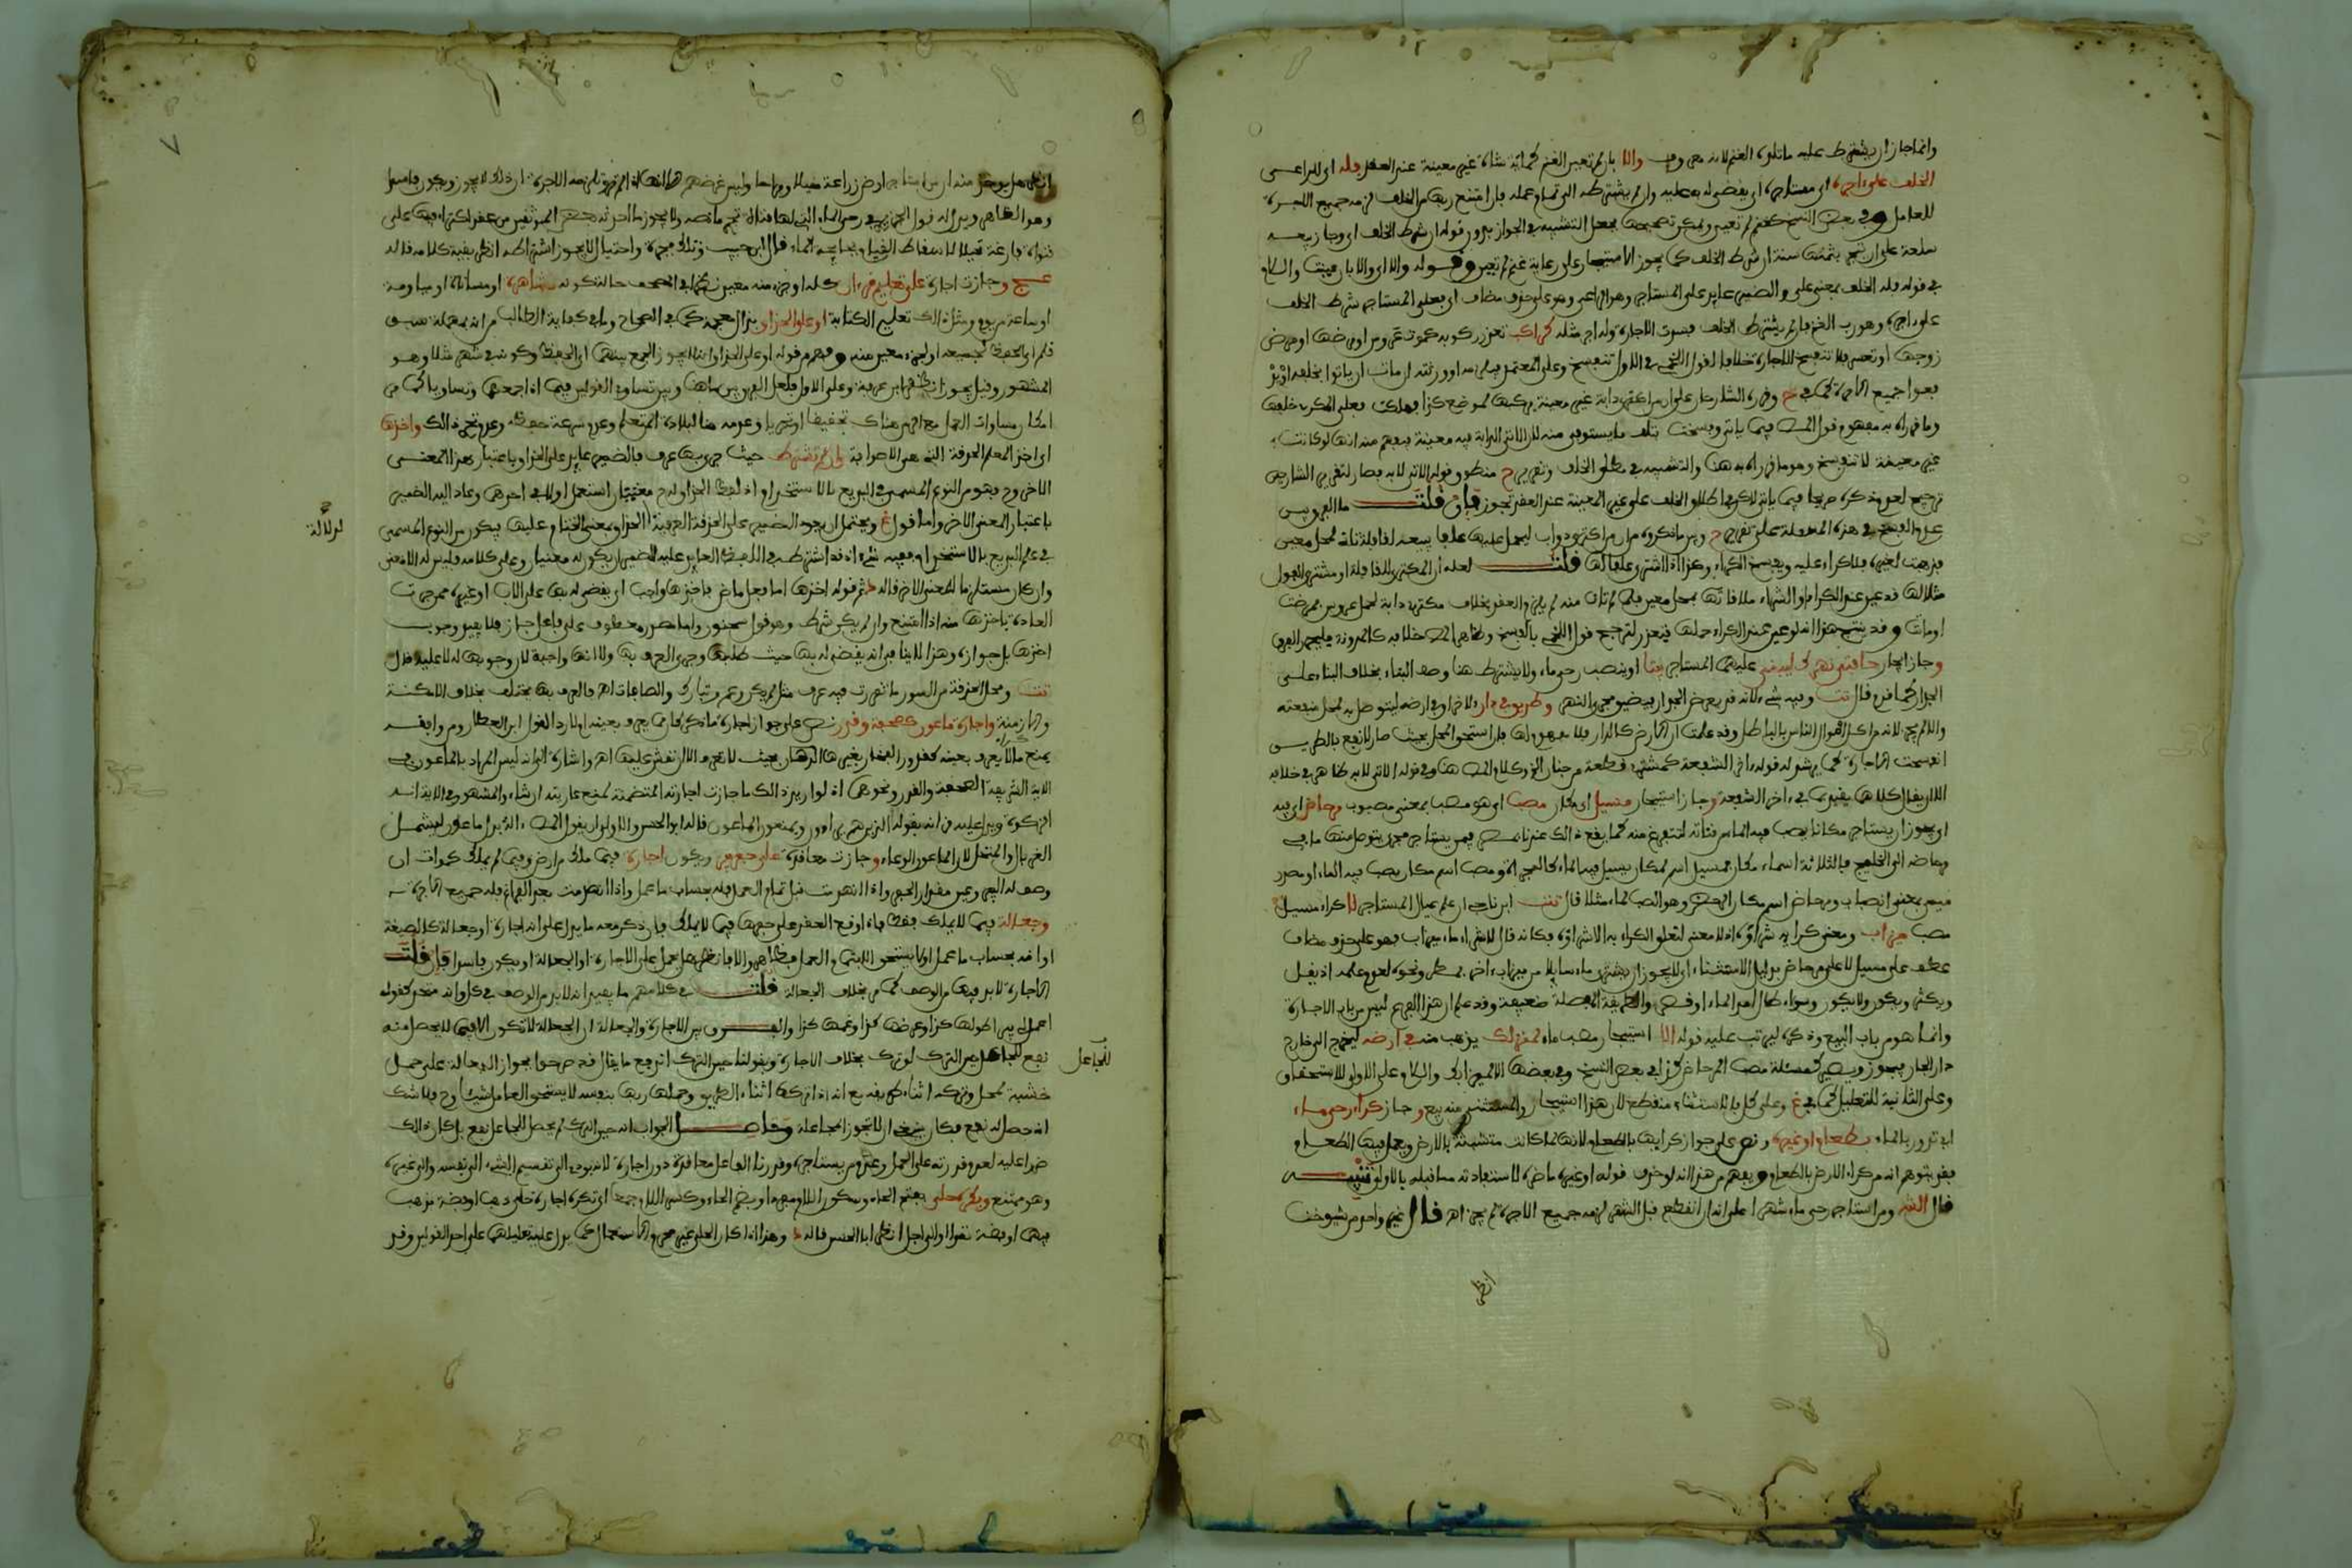 وانما جاز ان يشترط عليه ماتلزمه الغنم لانه معروف والا بان لم تعين الغنم كمائة شاة غير معينة عند العقد فله اي للراعي
الخلف على اجره اي مستاجره اي يقضى له به عليه وان لم يشترطه الى تمام عمله فان امتنع ربها من الخلف لزمه جميع الاجرة
للعامل وفي بعض النسخ كغنم لم تعين ويمكن تصحيحها بجعل التشبيه في الجواز بدون قوله ان شرط الخلف اي وجاز بيعه
سلعة على ان يتجر بثمنها سنة ان شرط الخلف كما يجوز الاستيجار على رعاية غنم لم تعين وقوله والا اي والا بان عينت والكلام
في قوله فله الخلف بمعنى على والضمير عايد على المستاجر وهو الراعي وهو على حذف مضاف اي فعلى المستاجر شرط الخلف
على اجره وهو رب الغنم فان لم يشترط الخلف فسدت الاجارة وله اجر مثله كراكب تعذر ركوبه كموت عروس او مرضها او مرض
زوجها او تعسر فلا تنفسخ الاجارة خلافا لقول اللخمي في الاول تنفسخ وعلى المعتمد فيلزمه او ورثته ان مات ان ياتوا بخلفه او يد
فعوا جميع الاجرة كما في ح وقرره الشارحان على ان من اكترى دابة غير معينة يركبها لموضع كذا فهلكت فعلى المكري خلفها
وما قرراه به مفهوم قول المص فيما ياتي وفسخت بتلف ما يستوفى منه لان الاتي الدابة فيه معينة فيفهم منه انها لو كانت
غير معينة لا تنفسخ وهو ما قرراه به هنا والتشبيه في مطلق الخلف وتقرير ح منطوق قوله الاتي لا به فصار لتقرير الشارحين
ترجيح لعدم ذكره صريحا فيما ياتي لكن في اطلاق الخلف على غير المعينة عند العقد تجوز فان قلت ما الفرق بين
عدم الفسخ في هذه المسئلة على تقرير ح وبين ما ذكروه من ان من اكترى دواب ليحمل عليها علفا يبيعه لقافلة تاتي لمحل معين
فذهبت لغيره فلا كراء عليه ويفسخ الكراء وكذا اذا اشترى علفا لها قلت لعله ان المكتري للقافلة او مشتري الفول
مثلا لها قد عين عند الكراء او الشراء ملاقاتها بمحل معين فلما لم تات منه لم يلزم العقد بخلاف مكتري دابة لحمل عروس فمرضت
او ماتت وقد ينتج هذا انه لو عين عند الكراء حملها فتعذر لترجح قول اللخمي بالفسخ وظاهر المص خلافه كالمدونة فليحرر الفرق
وجاز ايجار حافتي نهرك ليبني عليهما المستاجر بيتا او ينصب رحى ماء ولا يشترط هنا وصف البناء بخلاف البناء على
الجدار كما مر قال تت وفيه شيء لانه قد يعرض الجدار فيضيق مجرى النهر وطريق في دار لاخر او في ارضه ليتوصل به لمحل منفعته
والا لم يجز لانه من اكل اموال الناس بالباطل وقد علمت ان الارض كالدار فلا مفهوم لها فان استحق المحل بحيث صار لا نفع بالطريق
انفسخت الاجارة كما يرشد له قوله اخر الشفعة كمشتري قطعة من جنان الخ وكلام المص هنا وفي قوله الاتي لا به ظاهر في خلافه
الا ان يقال كلاهما يقيد بما في اخر الشفعة وجاز استيجار مسيل اي مكان مصب اي هو مصب بمعنى مصبوب مرحاض اي فيه
اي يجوز ان يستاجر مكانا يصب فيه الماء من قناته لتتفرغ منه كما يقع ذلك عندنا بمصر فيمن يستاجر مجرى يتوصل منها ما في
مرحاضه الى الخليج فالثلاثة اسماء مكان فمسيل اسم لمكان يسيل فيه الماء كالمجراة ومصب اسم مكان يصب فيه الماء او مصدر
ميمي بمعنى انصباب ومرحاض اسم مكان الرحض وهو الصب لماء مثلا قال تت ابن ناجي ان علم عيال المستاجر لا كراء مسيل
مصب ميزاب ومعنى كرايه شراوه اذ لا معنى لتعلق الكراء به الا شراوه فكانه قال لا شراء ماء ميزاب فهو على حذف مضاف
عطف على مسيل لا على مرحاض بدليل الاستثناء اي لا يجوز ان يشتري ماء سايلا من ميزاب اخر بمطر ونحوه لعدم علمه اذ يقل
ويكثر ويكون ولا يكون وسواء طال امد الماء او قصر والطريقة المفصلة ضعيفة وقد علم ان هذا الفرع ليس من باب الاجارة
وانما هو من باب البيع وذكره ليرتب عليه قوله الا استيجار مصب ماء لمنزلك يذهب منه في ارضه ليخرج الى خارج
دار الجار فيجوز ويصير كمسئلة مصب المرحاض كذا في بعض النسخ وفي بعضها الا لميزابك والكلام على الاول للاستحقاق
وعلى الثانية للتعليل كما في غ وعلى كل فالاستثناء منقطع لان هذا استيجار والمستثنى منه بيع وجاز كراء رحى ماء
اي تدور بالماء بطعام او غيره ونص على جواز كرايها بالطعام لانها لما كانت متشبثة بالارض ويعمل فيها الطعام
فقد يتوهم انه من كراء الارض بالطعام ويفهم من هذا انه لو حذف قوله او غيره ماضره لاستفادته مما قبله بالاولى تنبيه
قال الشه ومن استاجر رحى ماء شهرا على انه ان انقطع قبل الشهر لزمه جميع الاجرة لم يجز اهـ قال غير واحد من شيوخنا
انظر
انظر هل يوخذ منه ان من استاجر ارض زراعة
وهو الظاهر ويدل له قول
فتواه فارغة قيلا قال ابن حبيب وذلك يجري واحتيال لا يجوز اشتراطه انظر بقية كلامه قاله
عج وجازت اجارة على تعليم قرءان كله او جزء منه معين نظرا في المصحف حالة كونه مشاهرة او مساناة او مياومة
او ساعة من يوم ومثل ذلك تعليم الكتابة او على الحذاق بذال معجمة كما في الصحاح وما في كفاية الطالب من انه بمهملة سبق
قلم اي الحفظ لجميعه او لجزء معين منه وفهم من قوله او على الحذاق انه لا يجوز الجمع بينهما اي الحفظ وكونه في شهر مثلا وهو
المشهور وقيل يجوز انظر ابن عرفة وعلى الاول فلعل الفرق بين ما هنا وبين تساوي القولين فيما اذا جمعهما وتساويا كما مر
امكان مساواة العمل مع الزمن هناك تحقيقا او تقريبا وعدمه هنا لبلادة المتعلم وعدم سرعة حفظه وعدم تحرر ذلك واخذها
اي اخذ المعلم الحذقة التي هي الاصرافة وان لم تشترط حيث جرى بها عرف فالضمير عايد على الحذاق باعتبار هذا المعنى
الاخر وح فهو من النوع المسمى في البديع بالاستخدام اذ لفظ الحذاق له ح معنيان استعمل اولا في احدهما وعاد اليه الضمير
باعتبار المعنى الاخر واما قول غ ويحتمل ان يعود الضمير على الحذقة القريبة الحذاق بمعنى الختام وعليه فيكون من النوع المسمى
في علم البديع بالاستخدام ففيه شيء اذ قد اشترط في اللفظ العايد عليه الضمير ان يكون له معنيان وعلى كلامه فليس له الا معنى
وان كان مستلزما للمعنى الاخر قاله د ثم قوله اخذها اما فعل ماض فاخذها واجب اي يقضى له بها على الاب او غيره ممن جرت
العادة باخذها منه اذا امتنع وان لم يكن شرط وهو قول سحنون واما مصدر معطوف على فاعل جاز فلا يفيد وجوب
اخذها بل جوازه وهذا لا ينافي انه يقضى له بها حيث طلبها وجرى العرف بها ولا انها واجبة لان وجوبها له لا عليه قال
تت ومحل الحذقة من السور ما تقررت فيه عرفا مثل لم يكن وعم وتبارك والصافات اهـ فالعرف بها يختلف بخلاف الامكنة
والازمنة واجارة ماعون كصحفة وقدر نص على جواز اجارة ما ذكر فانما يعرف بعينه اولا ردا لقول ابن العطار ومن وافقه
بمنع ما لا يعرف بعينه كقدور الفخار بحيث لا تعرف الا ان نقش عليها اهـ واشارة الى انه ليس المراد بالماعون في
الاية الشريفة الصحفة والقدر ونحوهما اذ لو اريد ذلك ما جازت اجارته المتضمنة لمنع عاريته ان شاء والمشهور في الاية انه
الزكوة ويدل عليه قرانه بقوله الذين هم يراءون ويمنعون الماعون قاله ابو الحسن والاولى ان يقول المص والة بدل ماعون ليشمل
الغربال والمنخل لان الماعون الوعاء وجازت معاقدة على حفر بئر ويكون اجارة فيما ملك من ارض وفيما لم يملك كموات ان
وصف له البئر وعين مقدار الحفر واذا انهدمت قبل تمام العمل فله بحساب ما عمل واذا انهدمت بعد الفراغ فله جميع الاجرة
وجعالة فيما لا يملك فقط فاذا وقع العقد على حفرها فيما لا يملك فان ذكر معه ما يدل على انه اجارة او جعالة كالصيغة
او انه بحساب ما عمل اولا يستحق الا بتمام العمل فظاهر والا فانظر هل يحمل على الاجارة او الجعالة او يكون فاسدا فان قلت
الاجارة لا بد فيها من الوصف كما مر بخلاف الجعالة قلت في كلامهم ما يفيد انه لا بد من الوصف في كل وانه متحد كقوله
اعمل لي بئرا طولها كذا وعرضها كذا وعمقها كذا والفرق بين الاجارة والجعالة ان الجعالة لا تكون الا فيما لا يحصل منه
نفع للجاعل حين الترك لو ترك بخلاف الاجارة وبقولنا حين الترك اندفع ما يقال قد صرحوا بجواز الجعالة على حمل
خشبة لمحل وتركه اثناء طريقه مع انه اذا تركها اثناء الطريق وحملها ربها بنفسه لا يستحق العامل شيئا وح فلا شك
انه حصل له نفع فكان ينبغي ان لا تجوز المجاعلة وحاصل الجواب انه حين الترك لم يحصل للجاعل نفع بل كان ذلك
ضررا عليه لعدم قدرته على الحمل وعدم من يستاجره وقدرنا الفاعل معاقدة دون اجارة لانه يودي الى تقسيم الشيء الى نفسه والى غيره
وهو ممتنع ويكره حلي بفتح الحاء وسكون اللام مفردا وبضم الحاء وكسر اللام جمعا اي تكره اجارة حلي ذهب او فضة بذهب
فيهما او فضة نقدا او الى اجل انظر ابا الحسن قاله د وهذا اذا كان الحلي غير محرم الاستعمال كما يدل عليه تعليلهم على احد القولين وقد
لدلالة
للجاعل